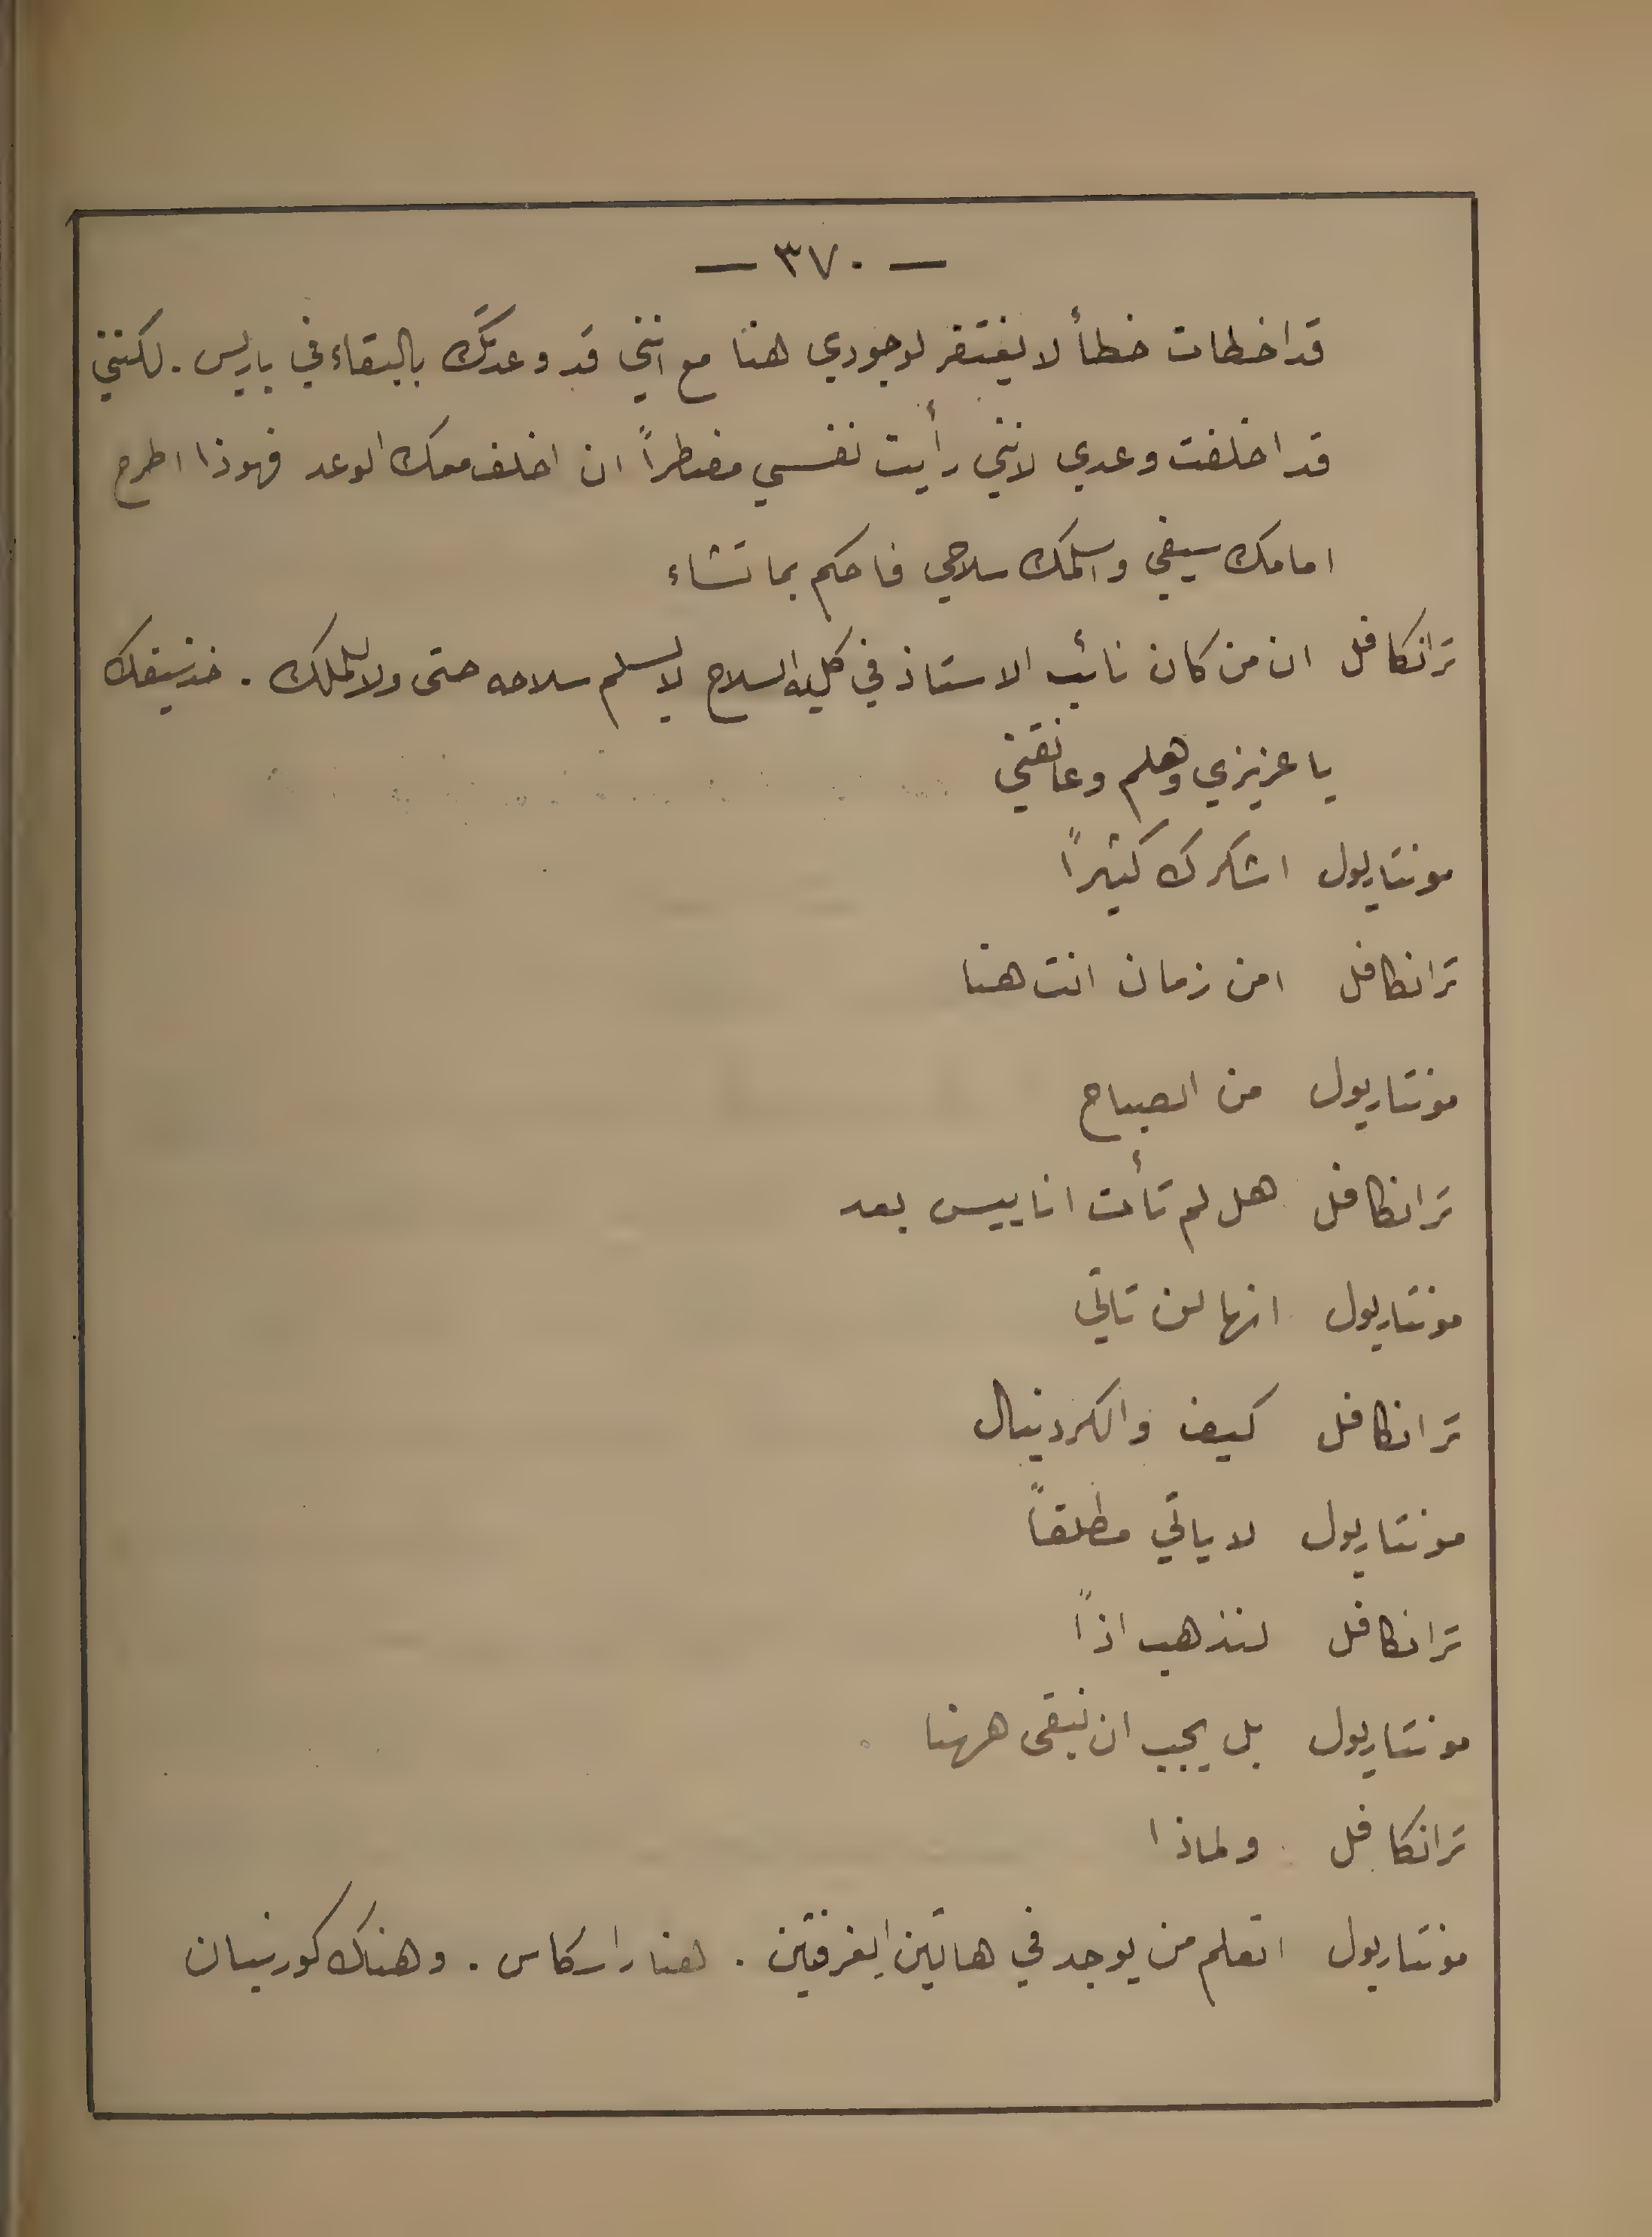 — ٣٧٠ —
قد اخطات خطأ لا يغتفر لوجودي هنا مع انني قد وعدتك بالبقاء في باريس . لكنني
قد اخلفت وعدي لانني رأيت نفسي مضطراً ان اخلف معك الوعد فهوذا اطرح
امامك سيفي واسلمك سلاحي فاحكم بما تشاء
ترانكافل ان من كان نائب الاستاذ في كلية السلاح لا يسلم سلاحه حتى ولا للملك . خذ سيفك
يا عزيزي وهلم وعانقني
مونتاريول اشكرك كثيراً
ترانكافل امن زمان انت هنا
مونتاريول من الصباح
ترانكافل هل لم تأت اناييس بعد
مونتاريول انها لن تاتي
ترانكافل كيف والكردينال
مونتاريول لا ياتي مطلقاً
ترانكافل لنذهب اذاً
مونتاريول بل يجب ان نبقى ههنا
ترانكافل ولماذا
مونتاريول اتعلم من يوجد في هاتين الغرفتين . هنا راسكاس . وهناك كورنيان